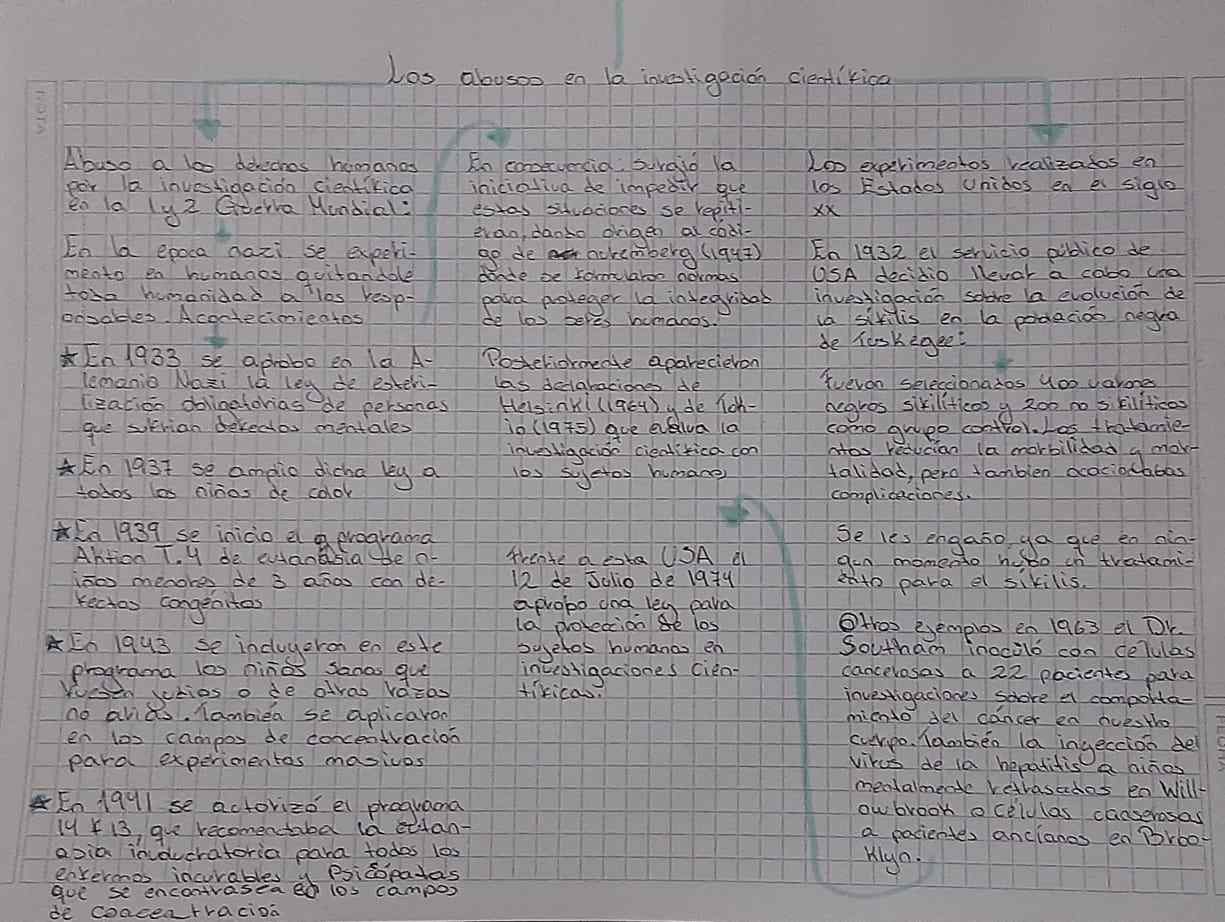 Los abusos en la investigación científica
Abuso a los derechos humanos
por la investigación científica
en la 1 y 2 Guerra Mundial:
En la epoca nazi se experi-
mento en humanos quitandole
toda humanidad a los resp-
onsables. Acontecimientos
★ En 1933 se aprobo en la A-
lemania Nazi la ley de esteri-
lización obligatorias de personas
que sufrian defectos mentales
★ En 1937 se amplio dicha ley a
todos los niños de color
★ En 1939 se inicio el programa
Aktion T.4 de eutanasia de n-
iños menores de 3 años con de-
fectos congénitos
★ En 1943 se incluyeron en este
programa los niños sanos que
fuesen judios o de otras razas
no arias. También se aplicaron
en los campos de concentración
para experimentos masivos
★ En 1941 se actorizó el programa
14 F 13, que recomentaba la eutan-
asia involucratoria para todos los
enfermos incurables y Psicópatas
que se encontrasen en los campos
de concentración
En consecuencia: Surgió la
iniciativa de impedir que
estas situaciones se repiti-
eran, dando origen al códi-
go de nuremberg (1947)
donde se formularon normas
para proteger la integridad
de los seres humanos.
Posteriormente aparecieron
las declaraciones de
Helsinki (1964) y de Tok-
io (1975) que avalva la
investigación científica con
los sujetos humanos
frente a esta USA el
12 de Julio de 1974
aprobo una ley para
la protección de los
sujetos humanos en
investigaciones cien-
tíficas.
Los experimentos realizados en
los Estados Unidos en el siglo
xx
En 1932 el servicio público de
USA decidio llevar a cabo una
investigación sobre la evolución de
la sífilis en la población negra
de Tuskegee:
fueron seleccionados 400 varones
negros sifilíticos y 200 no sifilíticos
como grupo control. Los tratamie-
ntos reducían la morbilidad y mor-
talidad, pero tambien ocacionabas
complicaciones.
Se les engaño ya que en nin-
gun momento hubo un tratami-
ento para el sífilis.
Otros ejemplos en 1963 el Dr.
Southam inoculó con células
cancerosas a 22 pacientes para
investigaciones sobre el comporta-
miento del cáncer en nuestro
cuerpo. También la inyección del
virus de la hepatitis a niños
mentalmente retrasados en Will-
owbrook o células canserosas
a pacientes ancianos en Broo-
klyn.